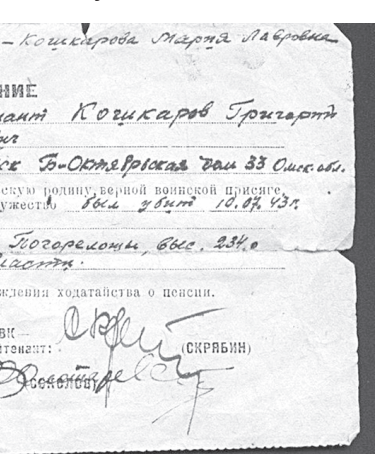 - Кошкарова Мария Лавровна
НИЕ
нант Кошкаров Григорий
ич
ск Б-Октябрьская дом 33 Омск. обл.
скую родину, верной воинской присяге,
ужество был убит 10.07.43 г.
Погореловцы, выс. 234.0
ласти.
ждения ходатайства о пенсии.
ВК —
йтенант: (СКРЯБИН)